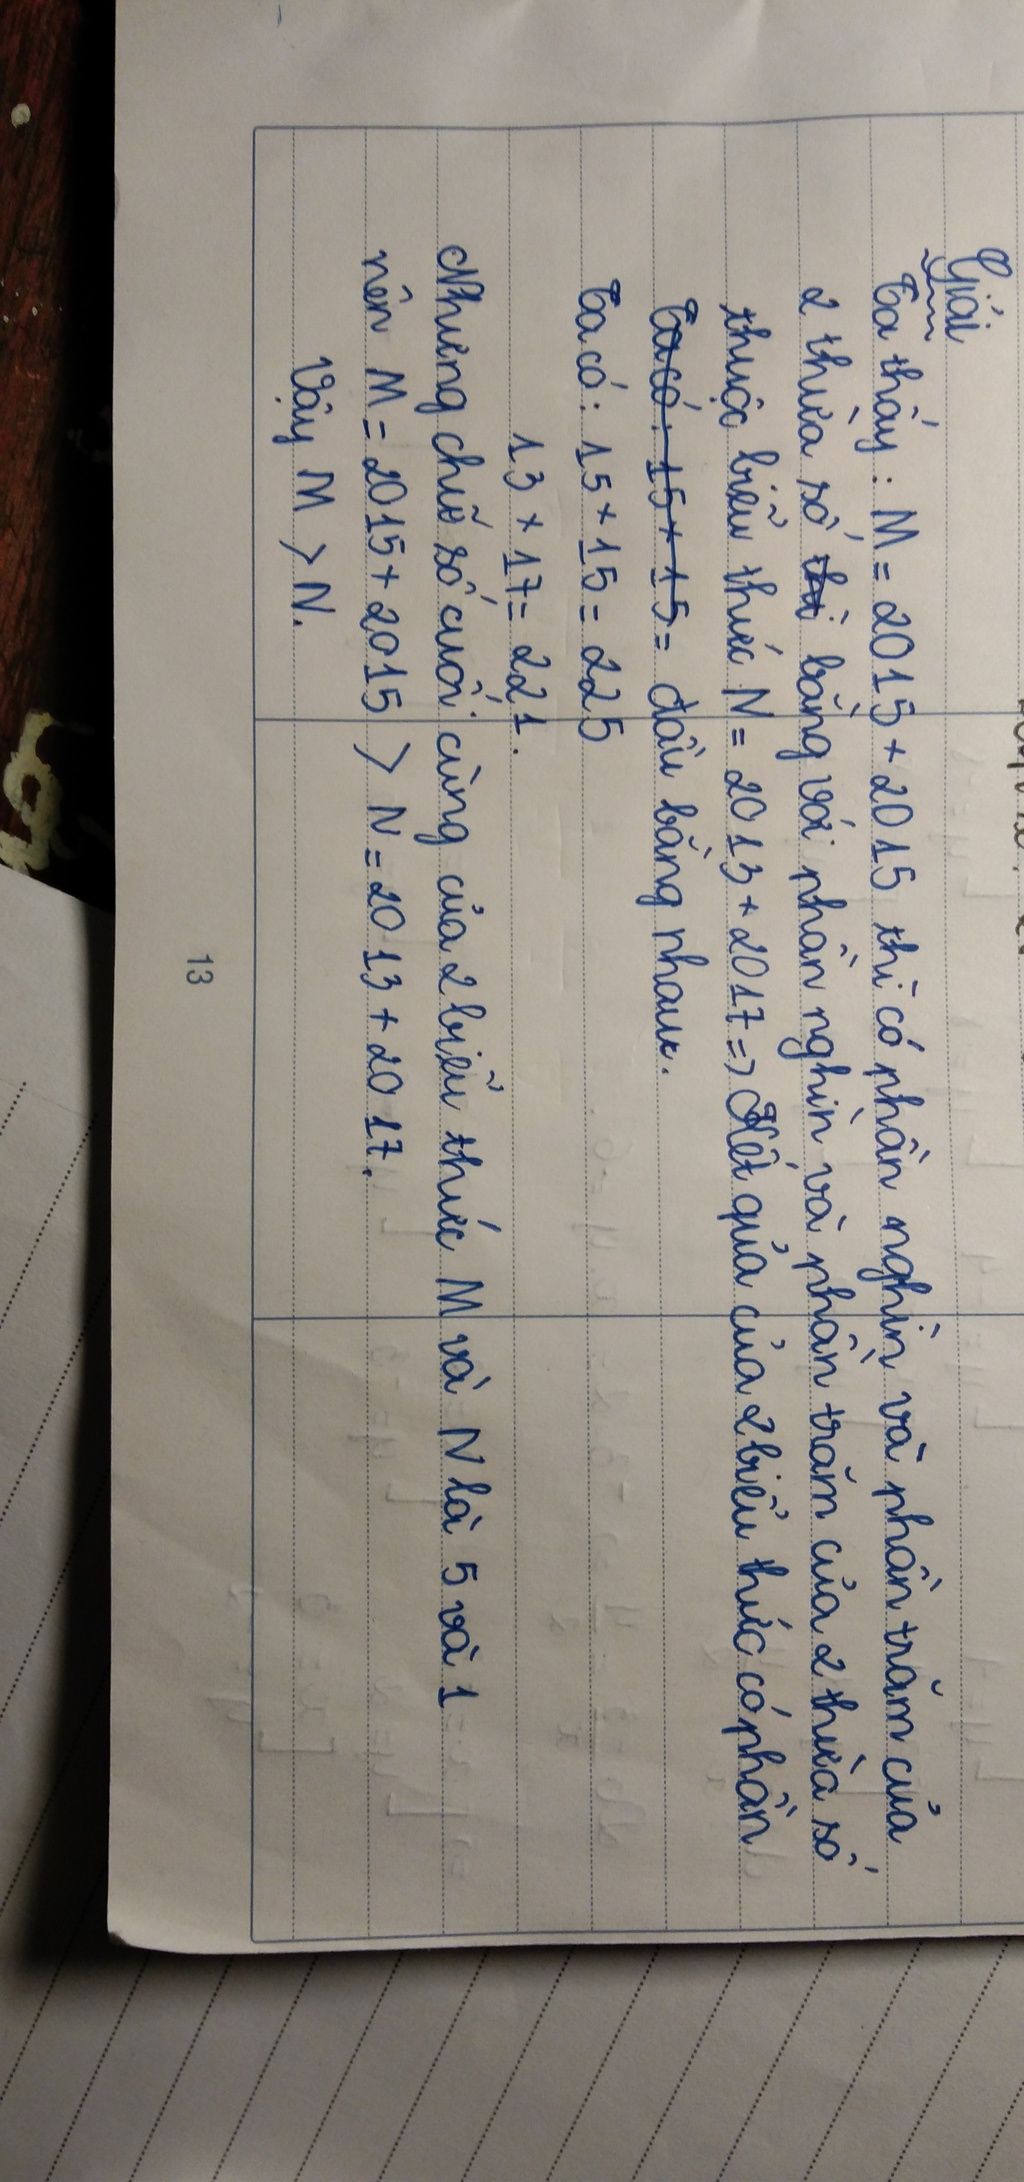 Giải
Ta thấy : M = 2015 × 2015 thì có phần nghìn và phần trăm của
2 thừa số thì bằng với phần nghìn và phần trăm của 2 thừa số
thuộc biểu thức N = 2013 × 2017 => Kết quả của 2 biểu thức có phần
Ta có : 15 × 15 = đầu bằng nhau.
Ta có : 15 × 15 = 225
13 × 17 = 221.
Nhưng chữ số cuối cùng của 2 biểu thức M và N là 5 và 1
nên M = 2015 × 2015 > N = 2013 × 2017.
Vậy M > N.
13